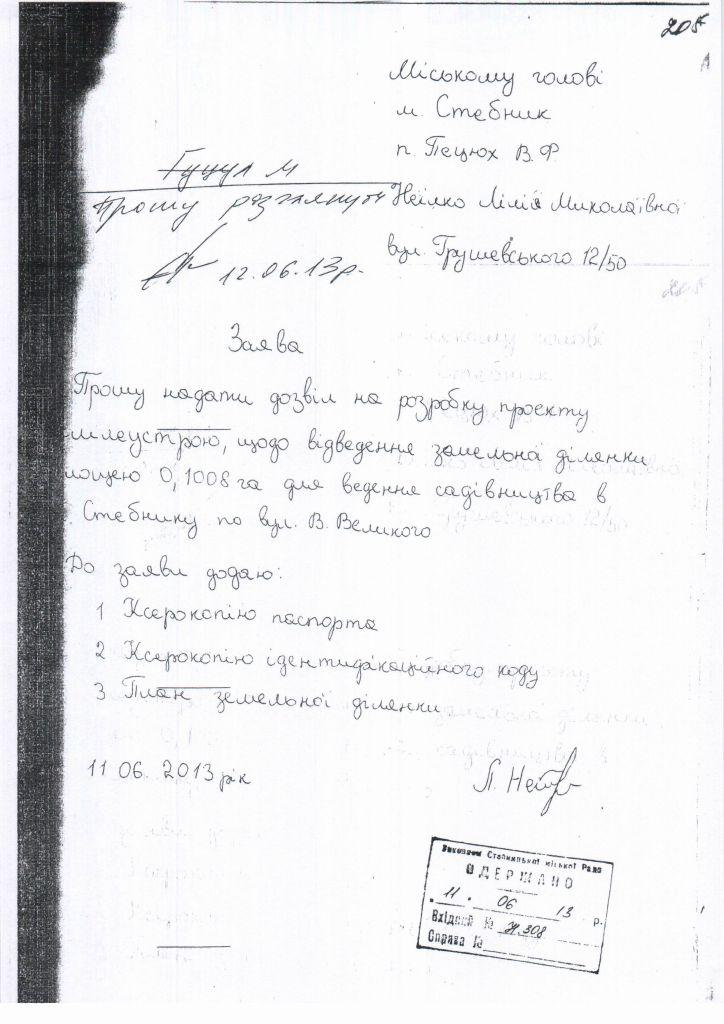 205
Міському голові
м. Стебник
п. Пецюх В.Ф.
Гуцул М
Прошу розглянути
12.06.13р.
Лілії Миколаївної
вул. Грушевського 12/50
Заява
Прошу надати дозвіл на розробку проєкту
млеустрою, щодо відведення земельної ділянки
лощею 0,1008 га для ведення садівництва в
Стебнику по вул. В. Великого
До заяви додаю:
1 Ксерокопію паспорта
2 Ксерокопію ідентифікаційного коду
3 План земельної ділянки
11 06. 2013 рік
Виконком Стебницької міської Ради
ОДЕРЖАНО
11. 06 13 р.
Вхідний № Н.308
Справа №